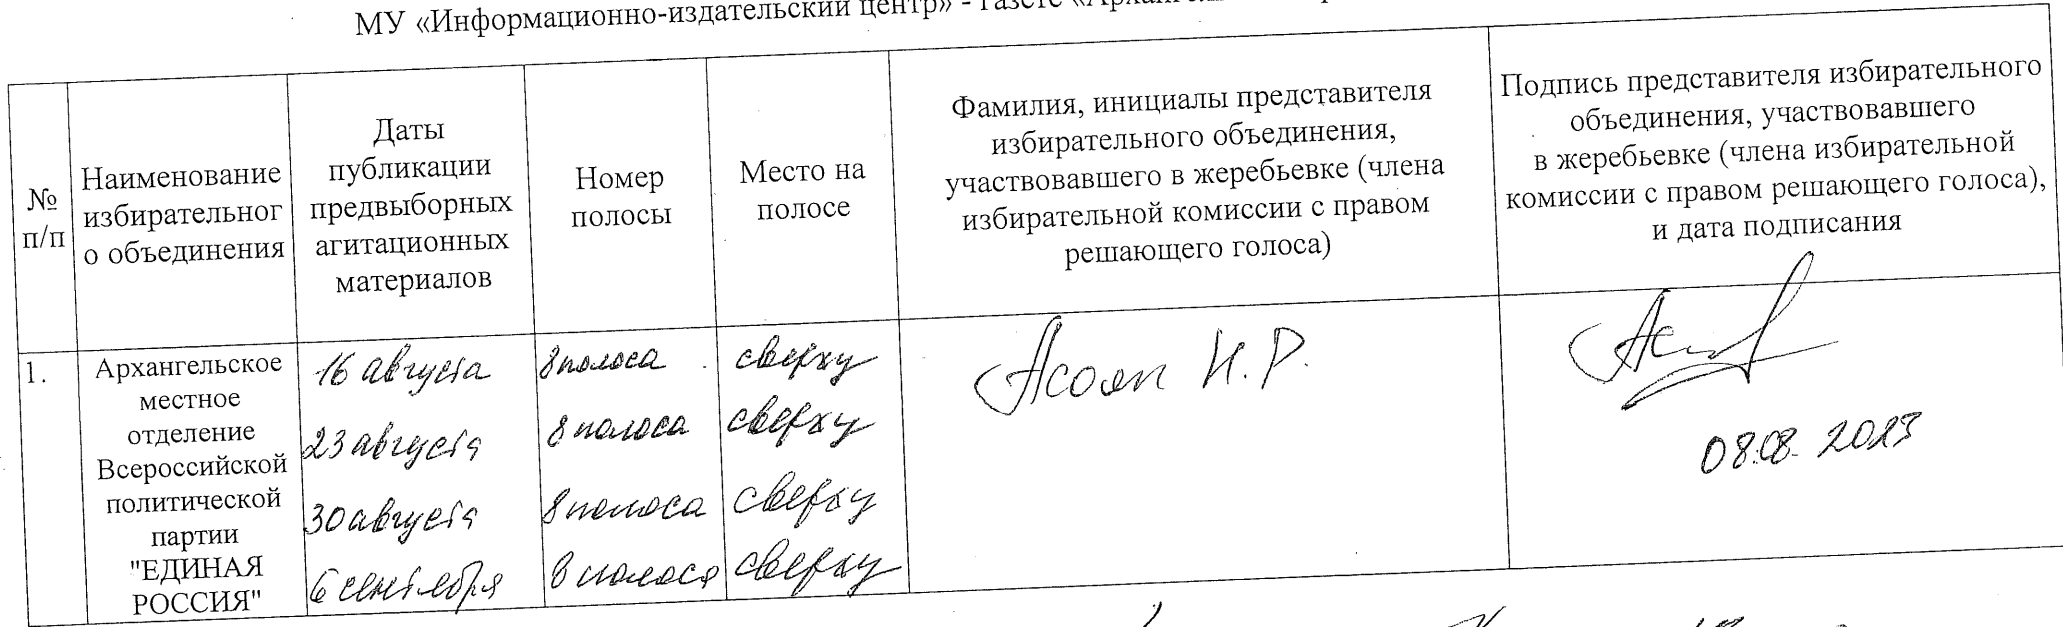 МУ «Информационно-издательский центр» - газете
№
п/п
Наименование
избирательног
о объединения
Даты
публикации
предвыборных
агитационных
материалов
Номер
полосы
Место на
полосе
Фамилия, инициалы представителя
избирательного объединения,
участвовавшего в жеребьевке (члена
избирательной комиссии с правом
решающего голоса)
Подпись представителя избирательного
объединения, участвовавшего
в жеребьевке (члена избирательной
комиссии с правом решающего голоса),
и дата подписания
1.
Архангельское
местное
отделение
Всероссийской
политической
партии
"ЕДИНАЯ
РОССИЯ"
16 августа
23 августа
30 августа
6 сентября
8 полоса
8 полоса
8 полоса
8 полоса
сверху
сверху
сверху
сверху
Асоян Н.Р.
08.08. 2023